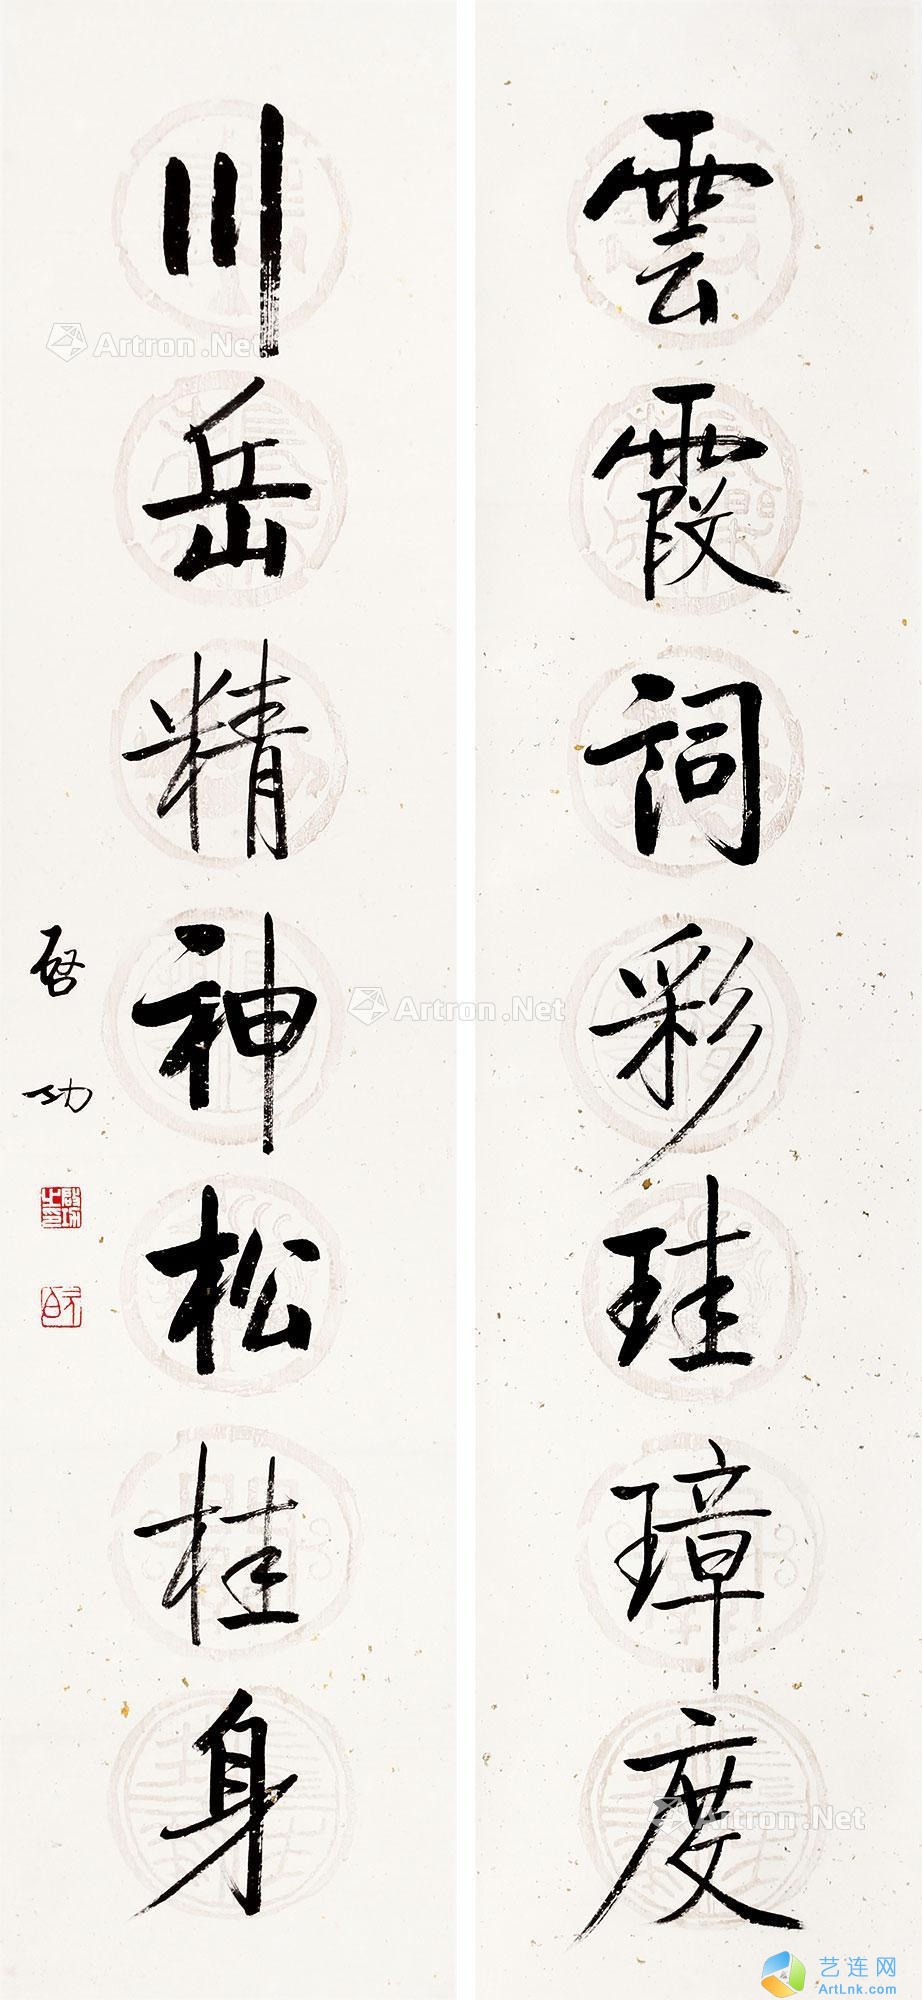 雲霞詞彩珪璋度
川岳精神松桂身
啓功
啟功之印
元白
Artron.Net
Artron.Net
Artron.Net
艺连网
ArtLnk.com